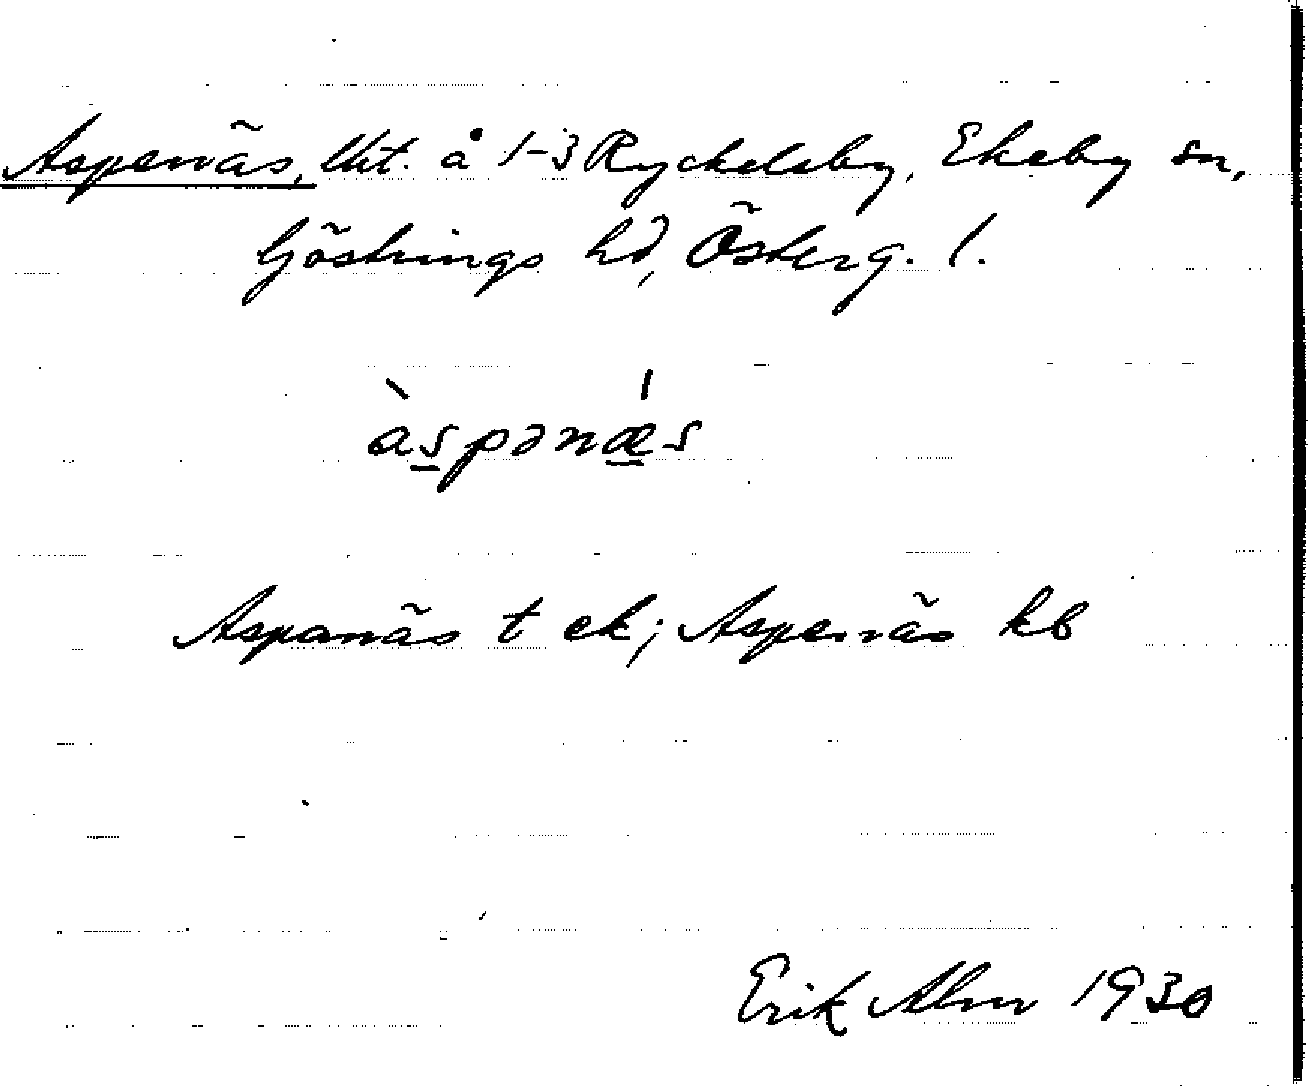 Aspenäs, lht. å 1-3 Ryckelsby, Ekeby sn,
Göstrings hd, Österg. l.
àspənǽs
Aspanäs t ek; Aspenäs kb
Erik Alm 1930